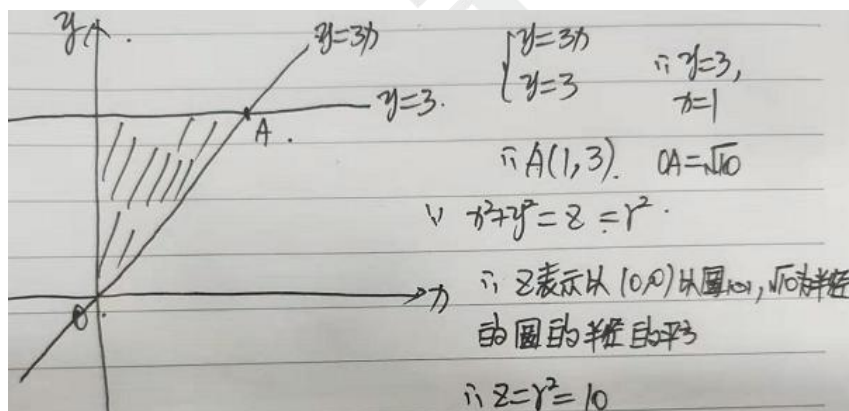 y
y=3x
y=3.
A.
O
x
{y=3x
y=3
∴ y=3,
x=1
∴ A(1,3). OA=√10
∵ x²+y²=z=r².
∴ z表示以(0,0)以圆心,√10为半径
的圆的半径的平方
∴ z=r²=10